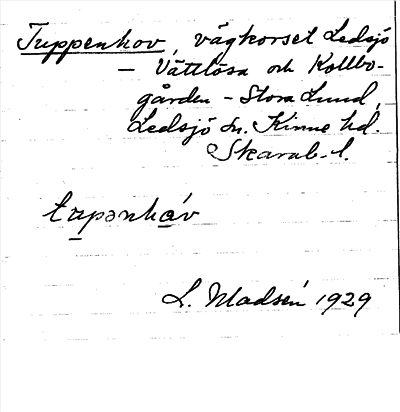 Tuppenhov, vägkorset Ledsjö
– Vättlösa och Kollbo-
gården – Stora Lund,
Ledsjö sn. Kinne hd.
Skarab. l.
L. Madsén 1929